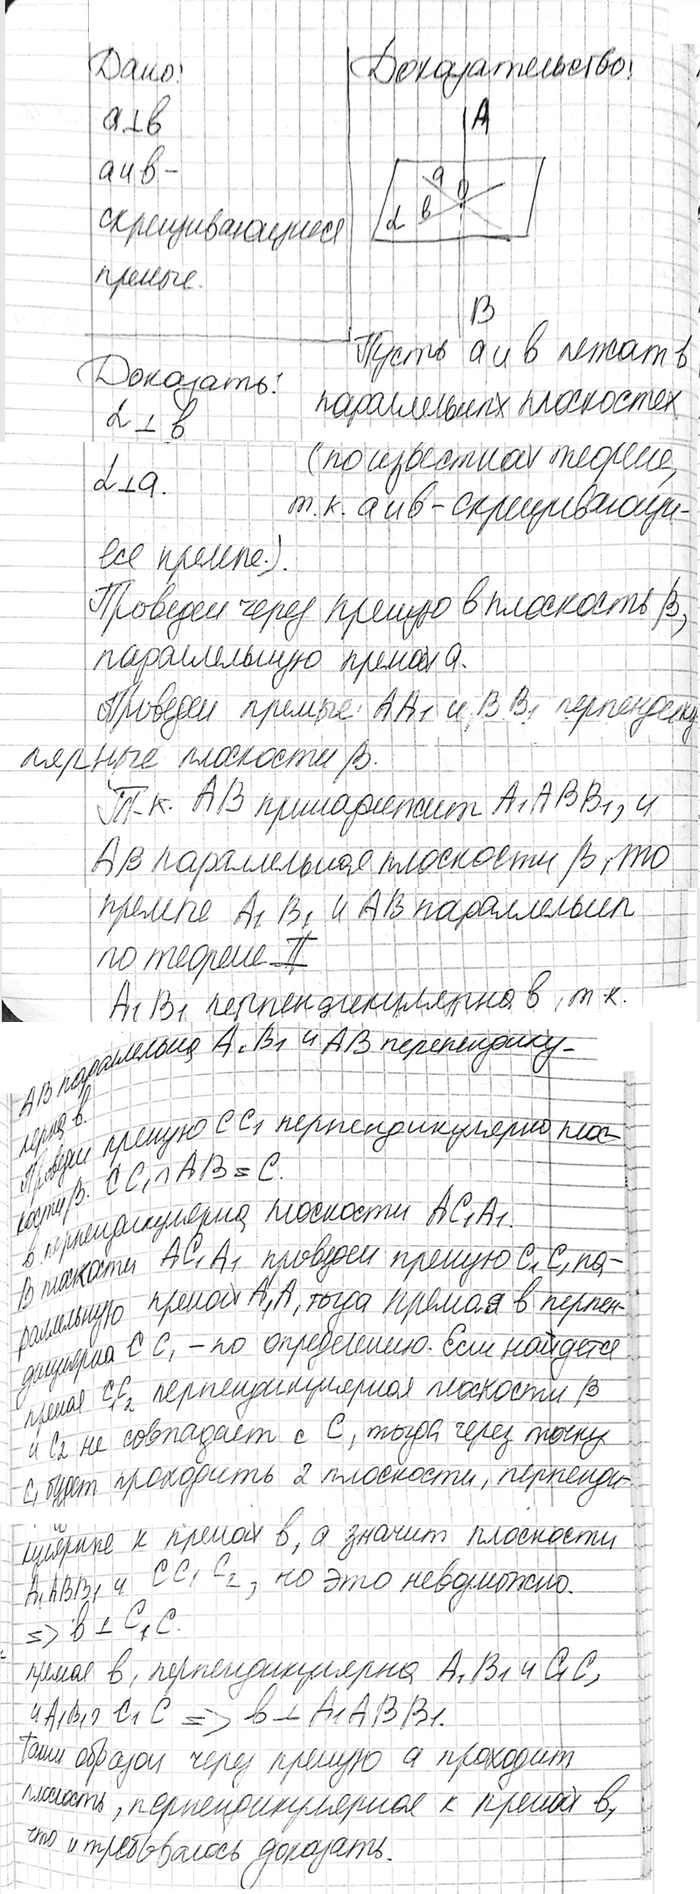 Дано:
a⊥b
a и b –
скрещивающиеся
прямые.
Доказать:
α ⊥ b
α⊥a.
Доказательство:
A
a
O
b
α
B
Пусть a и b лежат в
параллельных плоскостях
(по известной теореме,
т.к. a и b – скрещивающи-
еся прямые.).
Проведем через прямую b плоскость β,
параллельную прямой a.
Проведем прямые AA₁ и BB₁ перпендику
лярные плоскости β.
Т.к. AB принадлежит A₁ABB₁, и
AB параллельная плоскости β, то
прямые A₁B₁ и AB параллельны
по теореме II
A₁B₁ перпендикулярна b, т.к.
AB параллельна A₁B₁ и AB перепендику-
лярна b.
Проведем прямую CC₁ перпендикулярно плос-
кости β. CC₁∩AB=C.
b перпендикулярна плоскости AC₁A₁.
В плоскости AC₁A₁ проведем прямую C₁C, па-
раллельную прямой A₁A, тогда прямая b перпен-
дикулярна CC₁ – по определению. Если найдется
прямая C₁C₂ перпендикулярная плоскости β
и C₂ не совпадает с C, тогда через точку
C₁ будет проходить 2 плоскости, перпенди-
кулярные к прямой b, а значит плоскости
A₁ABB₁ и CC₁C₂, но это невозможно.
=> b ⊥ C₁C.
прямая b, перпендикулярна A₁B₁ и C₁C,
и A₁B₁∩C₁C => b⊥A₁ABB₁.
Таким образом через прямую a проходит
плоскость, перпендикулярная к прямой b,
что и требовалось доказать.